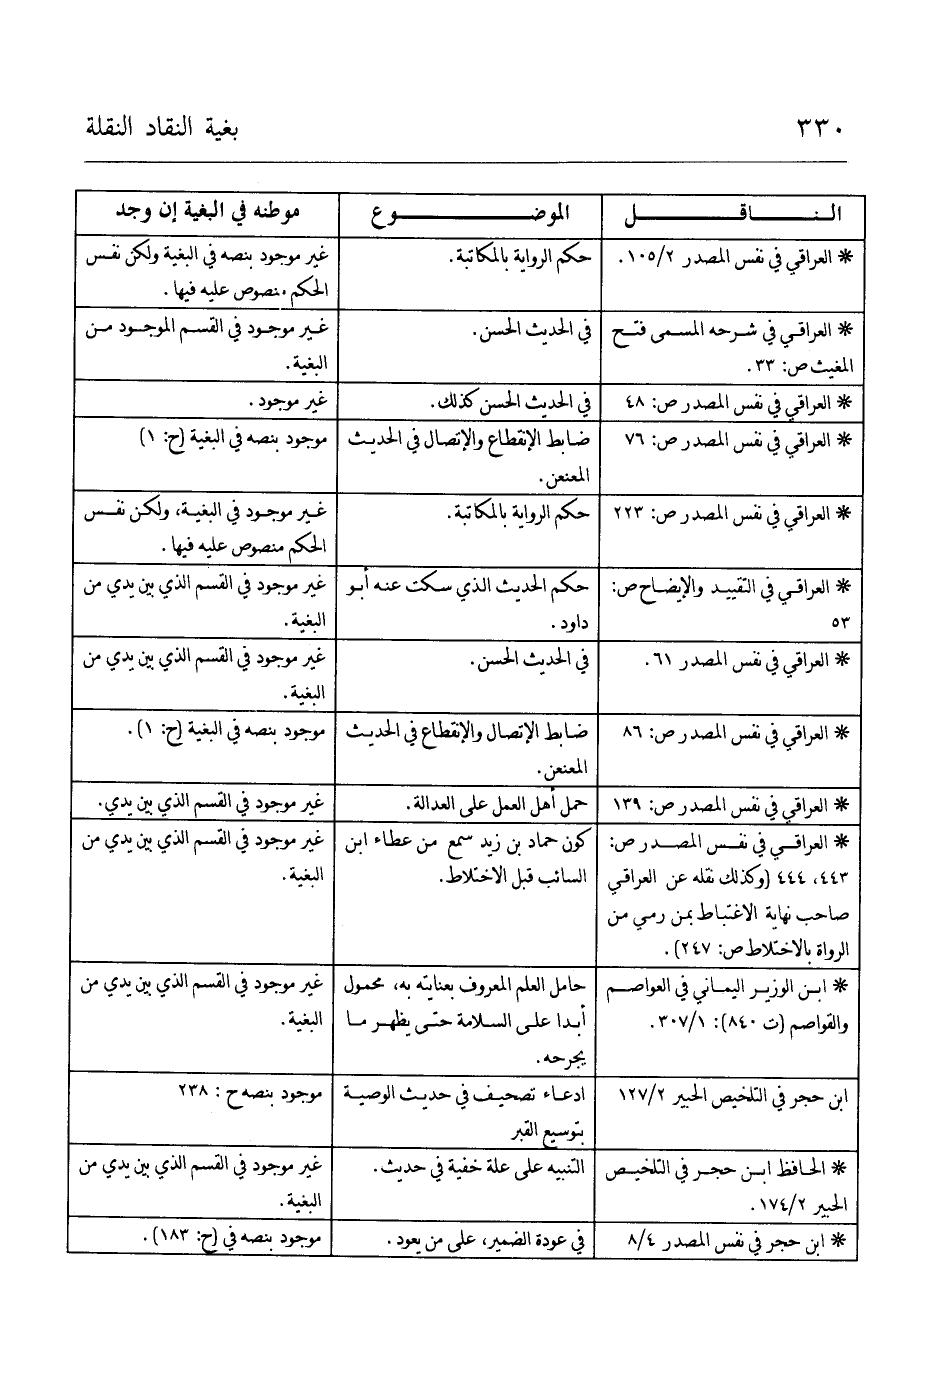 ٣٣٠
بغية النقاد النقلة
النـــاقـــل
الموضـــوع
موطنه في البغية إن وجد
* العراقي في نفس المصدر ١٠٥/٢.
حكم الرواية بالمكاتبة.
غير موجود بنصه في البغية ولكن نفس
الحكم منصوص عليه فيها.
* العراقي في شرحه المسمى فتح
المغيث ص: ٣٣.
في الحديث الحسن.
غير موجود في القسم الموجود من
البغية.
* العراقي في نفس المصدر ص: ٤٨
في الحديث الحسن كذلك.
غير موجود.
* العراقي في نفس المصدر ص: ٧٦
ضابط الإنقطاع والإتصال في الحديث
المعنعن.
موجود بنصه في البغية (ح: ١)
* العراقي في نفس المصدر ص: ٢٢٣
حكم الرواية بالمكاتبة.
غير موجود في البغية، ولكن نفس
الحكم منصوص عليه فيها.
* العراقي في التقييد والإيضاح ص:
٥٣
حكم الحديث الذي سكت عنه أبو
داود.
غير موجود في القسم الذي بين يدي من
البغية.
* العراقي في نفس المصدر ٦١.
في الحديث الحسن.
غير موجود في القسم الذي بين يدي من
البغية.
* العراقي في نفس المصدر ص: ٨٦
ضابط الإتصال والإنقطاع في الحديث
المعنعن.
موجود بنصه في البغية (ح: ١).
* العراقي في نفس المصدر ص: ١٣٩
حمل أهل العمل على العدالة.
غير موجود في القسم الذي بين يدي.
* العراقي في نفس المصدر ص:
٤٤٣، ٤٤٤ (وكذلك نقله عن العراقي
صاحب نهاية الاغتباط بمن رمي من
الرواة بالاختلاط ص: ٢٤٧).
كون حماد بن زيد سمع من عطاء ابن
السائب قبل الاختلاط.
غير موجود في القسم الذي بين يدي من
البغية.
* ابن الوزير اليماني في العواصم
والقواصم (ت ٨٤٠): ٣٠٧/١.
حامل العلم المعروف بعنايته به، محمول
أبدا على السلامة حتى يظهر ما
يجرحه.
غير موجود في القسم الذي بين يدي من
البغية.
ابن حجر في التلخيص الحبير ١٢٧/٢
ادعاء تصحيف في حديث الوصية
بتوسيع القبر
موجود بنصه ح : ٢٣٨
* الحافظ ابن حجر في التلخيص
الحبير ١٧٤/٢.
التنبيه على علة خفية في حديث.
غير موجود في القسم الذي بين يدي من
البغية.
* ابن حجر في نفس المصدر ٨/٤
في عودة الضمير، على من يعود.
موجود بنصه في (ح: ١٨٣).